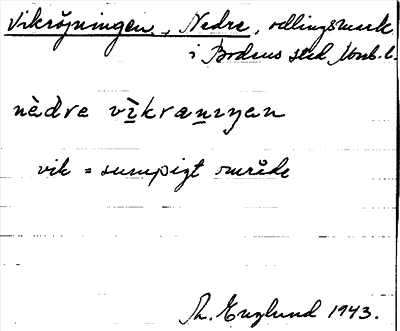 Vikröjningen, Nedre, odlingsmark
i Bodens stad Nbb. l.
nèdre vìkranɩŋen
vik = sumpigt område
Th. Englund 1943.